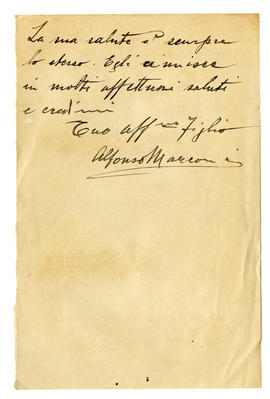 La mia salute è sempre
lo stesso. Egli si unisce
in molti affettuosi saluti
e credimi
Tuo aff.mo Figlio
Alfonso Marconi